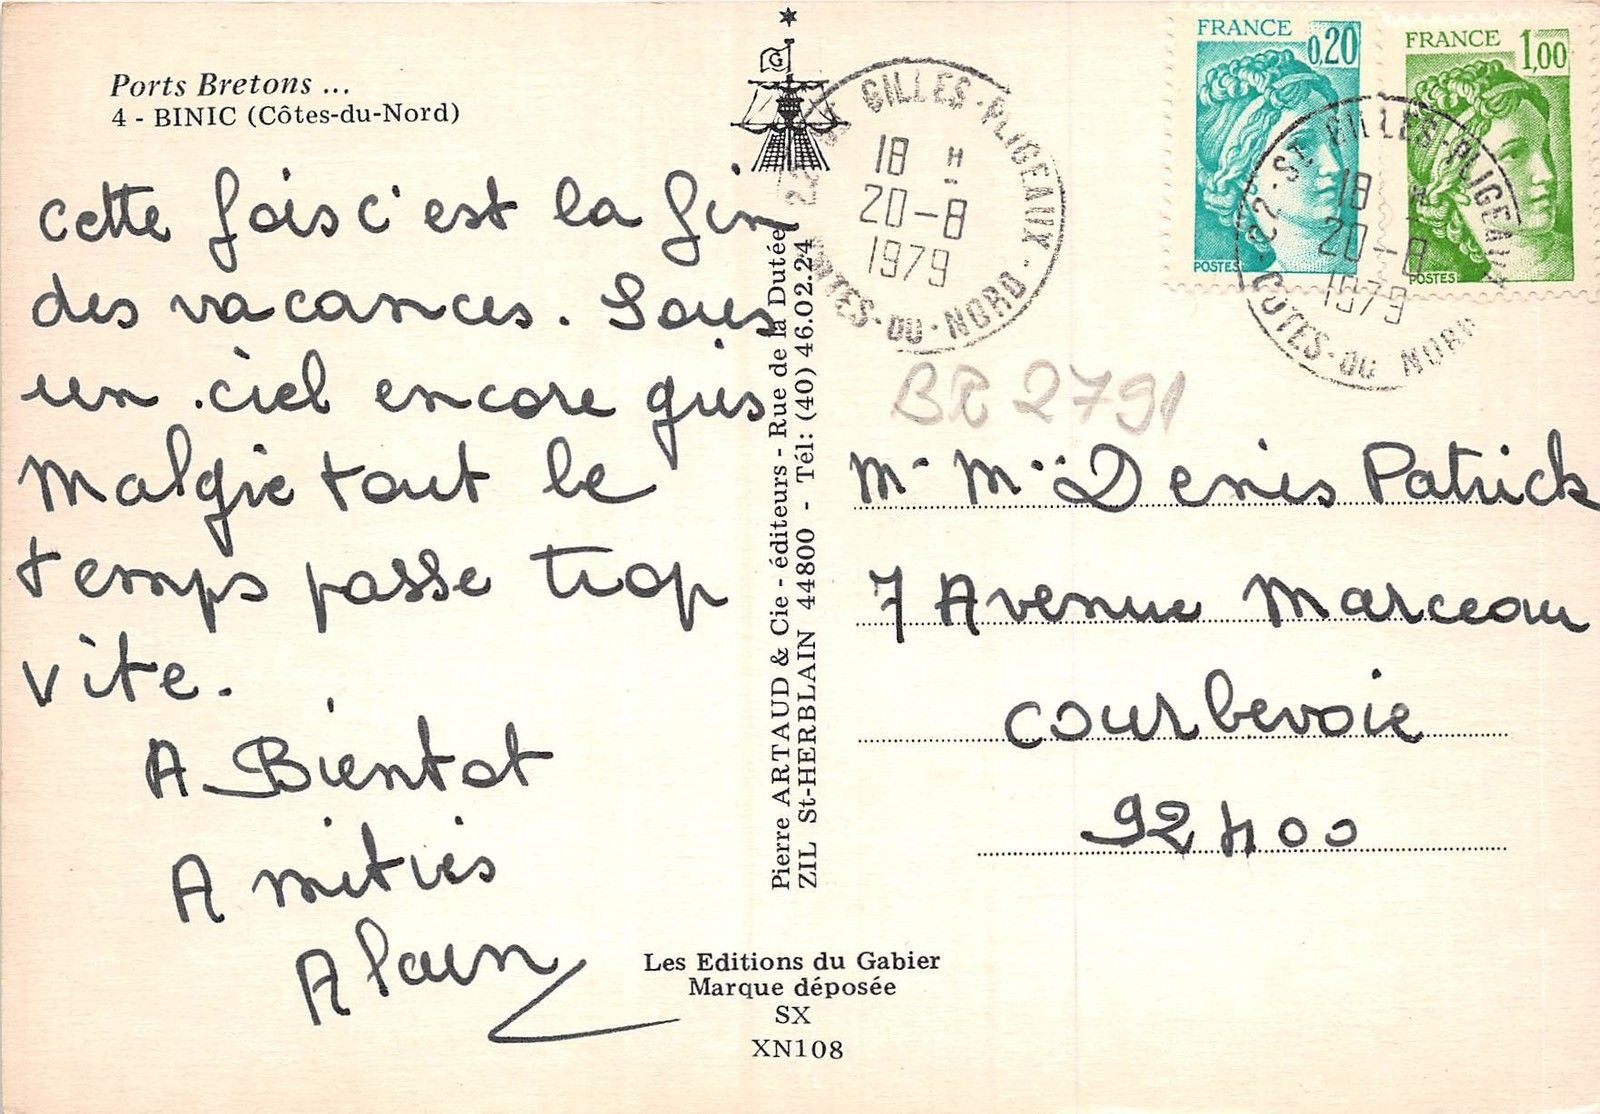 Ports Bretons ...
4 - BINIC (Côtes-du-Nord)
cette fois c'est la fin
des vacances. Sous
un ciel encore gris
Malgré tout le
temps passe trop
vite.
A Bientot
Amitiés
Alain
Pierre ARTAUD & Cie - éditeurs - Rue de la Dutée
ZIL St-HERBLAIN 44800 - Tél: (40) 46.02.24
Les Editions du Gabier
Marque déposée
SX
XN108
G
22 ST GILLES-PLIGEAUX
18 H
20-8
1979
COTES-DU-NORD
FRANCE 0,20
POSTES
FRANCE 1,00
POSTES
22-ST GILLES-PLIGEAUX
18 H
20-8
1979
COTES-DU NORD
BR 2791
Mr Mme Denis Patrick
7 Avenue Marceau
Courbevoie
92400